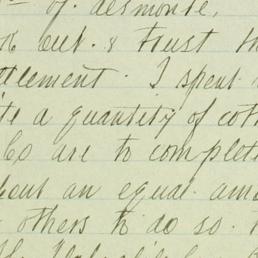 of. desmonte,
out. & trust
ttlement. I spent
a quantity of
Co are to complet
an equal am
others to do so.